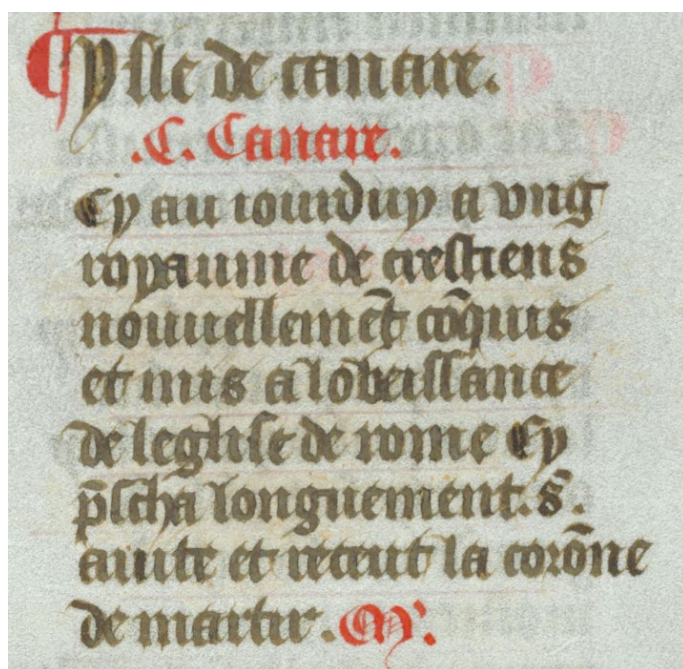 ¶ Yslle de canare.
.C. Canare.
Cy au iourduy a vng
royaume de crestiens
nouuellemēt cōquis
et mis a lobeissance
de leghise de rome Cy
p̄scha longuement .s̄.
auite et receut la corōne
de martir. M.